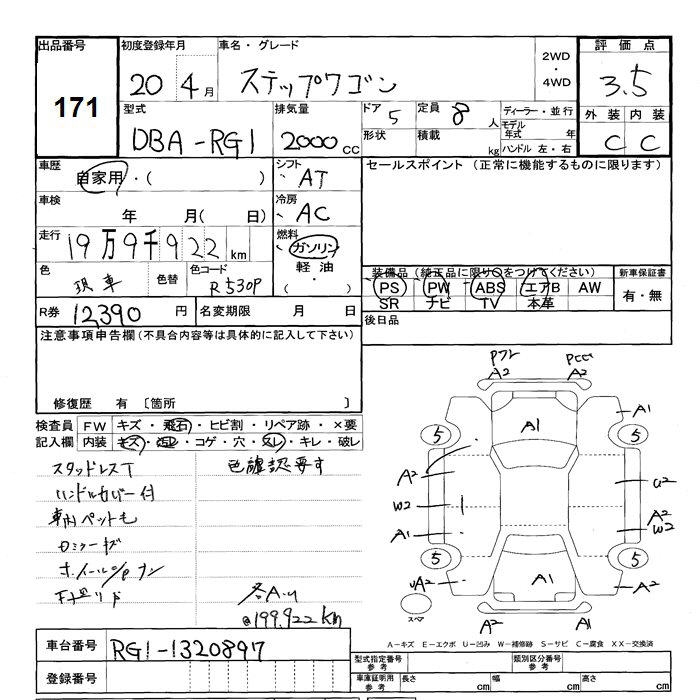 出品番号
171
初度登録年月
20 4月
車名・グレード
ステップワゴン
2WD
・
4WD
評価点
3.5
型式
DBA-RG1
排気量
2000cc
ドア 5
定員 8人
形状
積載 kg
ディーラー・並行
モデル
年式 年
ハンドル 左・右
外装 内装
C C
車歴
自家用・( )
シフト
AT
セールスポイント (正常に機能するものに限ります)
車検
年 月( 日)
冷房
AC
走行
19万9千922km
燃料
ガソリン
軽油
( ・ )
色
現車
色替
色コード
R530P
装備品 (純正品に限り○をつけてください)
PS PW ABS エアB AW
SR ナビ TV 本革
新車保証書
有・無
R券 12,390円
名変期限 月 日
後日品
注意事項申告欄 (不具合内容等は具体的に記入して下さい)
修復歴 有 〔箇所 〕
検査員
記入欄
FW キズ・飛石・ヒビ割・リペア跡・×要
内装 キズ・汚レ・コゲ・穴・スレ・キレ・破レ
スタッドレスT
ハンドルカバー付
車内ペット毛
色確認要す
@199,922km
A2 A2
A1
A1
5 5
A2
W2
A1
U2
A2
W2
5 5
UA2
A1
A2
A2 A1
スペア
A-キズ E-エクボ U-凹み W-補修跡 S-サビ C-腐食 XX-交換済
車台番号 RG1-1320897
登録番号
型式指定番号
参考
類別区分番号
参考
車庫証明用
参考
長さ cm 幅 cm 高さ cm